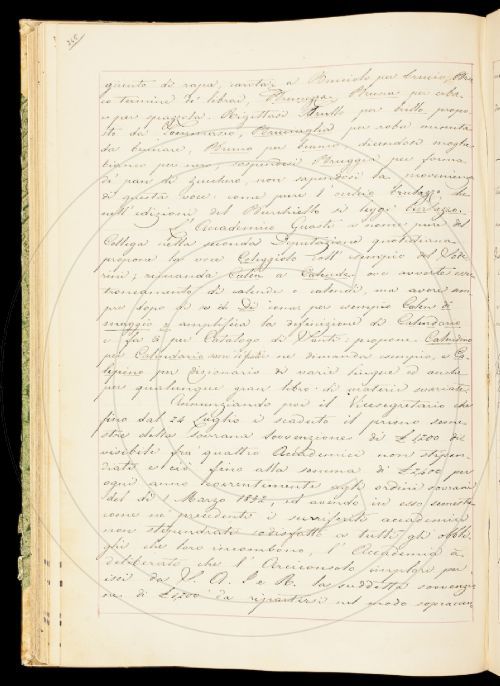 265
questo di rapa, cavata a per
a termine di librai, Bruzzaga, Brusca per erba
o per spazzola. Rigettasi Brullo per brullo propo
sto da Tommaseo, Bruciaglia per roba minuta
da bruciare, Bruno per bianco, dicendosi meglio
bianco per uno; sospendesi Bruggia per forma
di pan di zucchero, non sapendosi la provenienza
di questa voce: come pure l' antico che
nell' edizione del Burchiello si legge
L' Accademico Guasti a nome pure del
Collega nella seconda Deputazione quotidiana
propone la voce Caleggiolo coll' esempio del Sode
rini; rimanda Calen a Calende ove avverte esse
troncamento di calende o calendi, ma avere sem
pre dopo di se il Di come per esempio Calen di
maggio; amplifica la definizione di Calendario
e fa § per Catalogo di Santi: propone
per Calendario non rifiuta ne dimanda esempio, e Ca
lepino per dizionario di varie lingue ed anche
per qualunque gran libro di materie svariate.
Annunziando poi il Vicesegretario che
fino dal 24 Luglio è scaduto il primo seme
stre della Sovrana sovvenzione di £ 1200 di
visibile fra quattro Accademici non stipen
diati e ciò fino alla somma di £ 2400 per
ogni anno coerentemente agli ordini sovrani
del dì 1 Marzo 1842, ed avendo in esso semestre
come ne' precedenti i surriferiti accademici
non stipendiati sodisfatto a tutti gli obbli
ghi che loro incombono, l' Accademia à
deliberato che l' Arciconsolo implori per
essi da S. A. I. e R. la suddetta sovvenzio
ne di £ 1200 da ripartirsi nel modo sopraccen